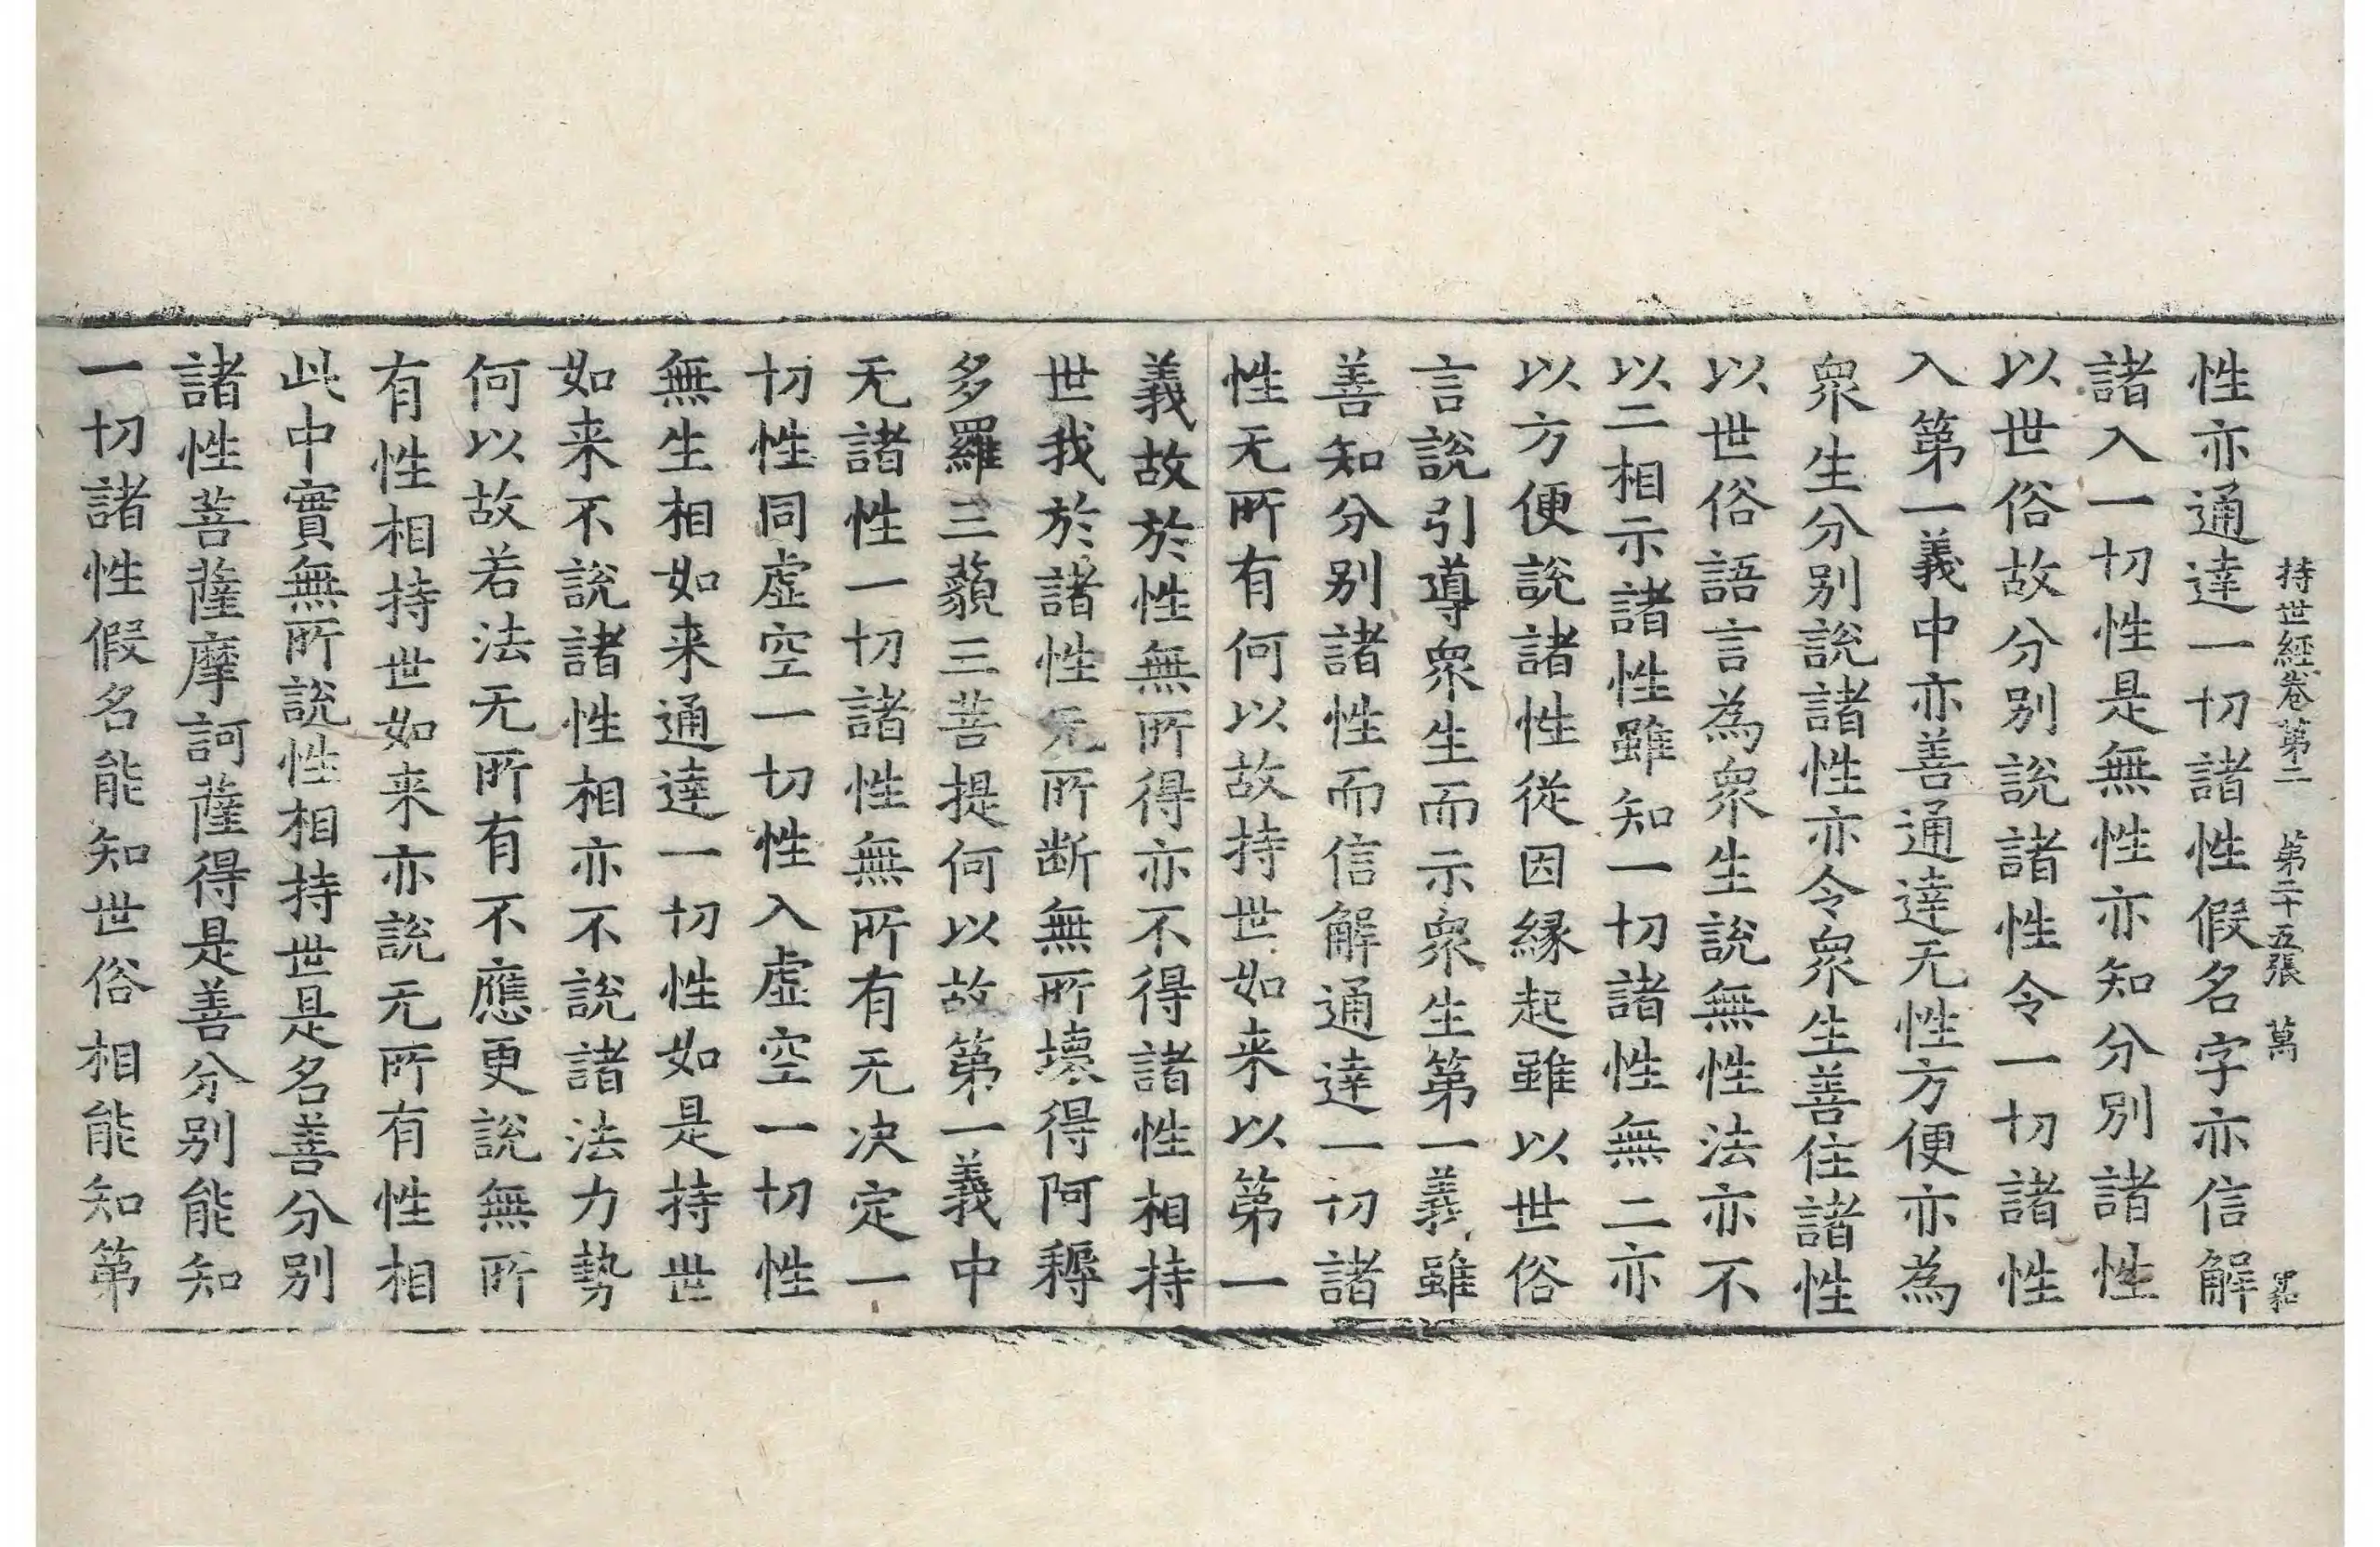 持世經卷第二　第二十五張　萬
性亦通達一切諸性假名字亦信解
諸入一切性是無性亦知分別諸性
以世俗故分别說諸性令一切諸性
入第一義中亦善通達无性方便亦為
衆生分別說諸性亦令衆生善住諸性
以世俗語言為衆生說無性法亦不
以二相示諸性雖知一切諸性無二亦
以方便說諸性從因緣起雖以世俗
言說引導衆生而示衆生第一義雖
善知分别諸性而信解通達一切諸
性无所有何以故持世如来以第一
義故於性無所得亦不得諸性相持
世我於諸性无所断無所壞得阿耨
多羅三藐三菩提何以故第一義中
无諸性一切諸性無所有无决定一
切性同虛空一切性入虛空一切性
無生相如来通達一切性如是持世
如来不說諸性相亦不說諸法力勢
何以故若法无所有不應更說無所
有性相持世如来亦說无所有性相
此中實無所說性相持世是名善分别
諸性菩薩摩訶薩得是善分別能知
一切諸性假名能知世俗相能知第